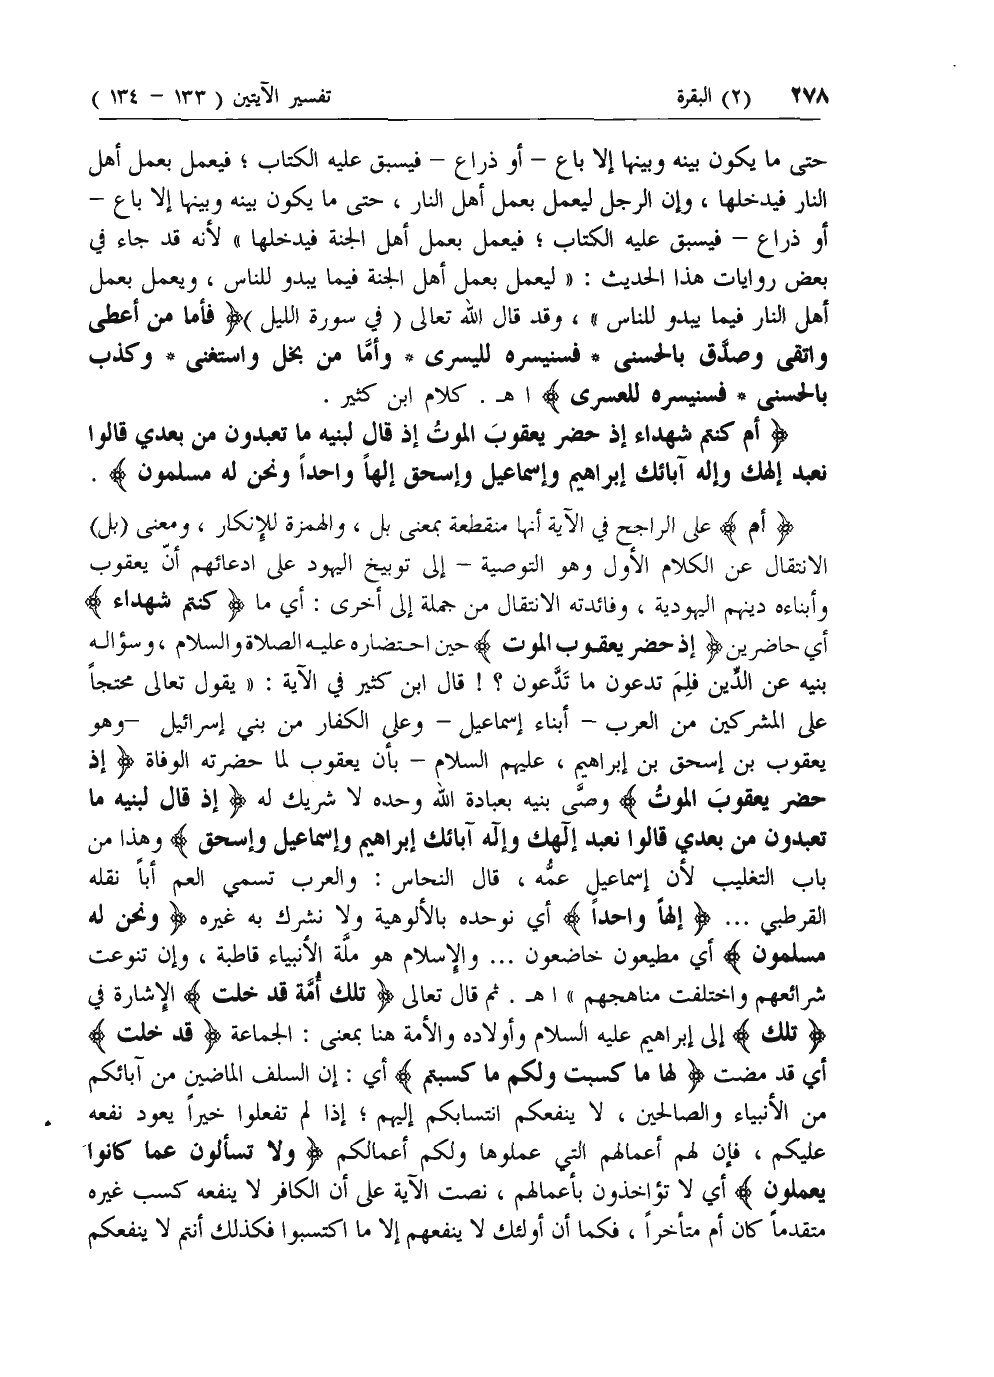 ٢٧٨ (٢) البقرة تفسير الآيتين ( ١٣٣ – ١٣٤ )
حتى ما يكون بينه وبينها إلا باع – أو ذراع – فيسبق عليه الكتاب ؛ فيعمل بعمل أهل
النار فيدخلها ، وإن الرجل ليعمل بعمل أهل النار ، حتى ما يكون بينه وبينها إلا باع –
أو ذراع – فيسبق عليه الكتاب ؛ فيعمل بعمل أهل الجنة فيدخلها » لأنه قد جاء في
بعض روايات هذا الحديث : « ليعمل بعمل أهل الجنة فيما يبدو للناس ، ويعمل بعمل
أهل النار فيما يبدو للناس » ، وقد قال الله تعالى ( في سورة الليل )﴿ فأما من أعطى
واتقى وصدَّق بالحسنى * فسنيسره لليسرى * وأمَّا من بخل واستغنى * وكذب
بالحسنى * فسنيسره للعسرى ﴾ ا هـ . كلام ابن كثير .
﴿ أم كنتم شهداء إذ حضر يعقوبَ الموتُ إذ قال لبنيه ما تعبدون من بعدي قالوا
نعبد إلهك وإله آبائك إبراهيم وإسماعيل وإسحق إلهاً واحداً ونحن له مسلمون ﴾ .
﴿ أم ﴾ على الراجح في الآية أنها منقطعة بمعنى بل ، والهمزة للإنكار ، ومعنى (بل)
الانتقال عن الكلام الأول وهو التوصية – إلى توبيخ اليهود على ادعائهم أنّ يعقوب
وأبناءه دينهم اليهودية ، وفائدته الانتقال من جملة إلى أخرى : أي ما ﴿ كنتم شهداء ﴾
أي حاضرين ﴿ إذ حضر يعقوب الموت ﴾ حين احتضاره عليه الصلاة والسلام ، وسؤاله
بنيه عن الدِّين فلِمَ تدعون ما تَدَّعون ؟ ! قال ابن كثير في الآية : « يقول تعالى محتجاً
على المشركين من العرب – أبناء إسماعيل – وعلى الكفار من بني إسرائيل –وهو
يعقوب بن إسحق بن إبراهيم ، عليهم السلام – بأن يعقوب لما حضرته الوفاة ﴿ إذ
حضر يعقوبَ الموتُ ﴾ وصَّى بنيه بعبادة الله وحده لا شريك له ﴿ إذ قال لبنيه ما
تعبدون من بعدي قالوا نعبد إلٓهك وإلٓه آبائك إبراهيم وإسماعيل وإسحق ﴾ وهذا من
باب التغليب لأن إسماعيل عمُّه ، قال النحاس : والعرب تسمي العم أباً نقله
القرطبي ... ﴿ إلهاً واحداً ﴾ أي نوحده بالألوهية ولا نشرك به غيره ﴿ ونحن له
مسلمون ﴾ أي مطيعون خاضعون ... والإسلام هو ملَّة الأنبياء قاطبة ، وإن تنوعت
شرائعهم واختلفت مناهجهم » ا هـ . ثم قال تعالى ﴿ تلك أُمَّة قد خلت ﴾ الإشارة في
﴿ تلك ﴾ إلى إبراهيم عليه السلام وأولاده والأمة هنا بمعنى : الجماعة ﴿ قد خلت ﴾
أي قد مضت ﴿ لها ما كسبت ولكم ما كسبتم ﴾ أي : إن السلف الماضين من آبائكم
من الأنبياء والصالحين ، لا ينفعكم انتسابكم إليهم ؛ إذا لم تفعلوا خيراً يعود نفعه
عليكم ، فإن لهم أعمالهم التي عملوها ولكم أعمالكم ﴿ ولا تسألون عما كانوا
يعملون ﴾ أي لا تؤاخذون بأعمالهم ، نصت الآية على أن الكافر لا ينفعه كسب غيره
متقدماً كان أم متأخراً ، فكما أن أولئك لا ينفعهم إلا ما اكتسبوا فكذلك أنتم لا ينفعكم